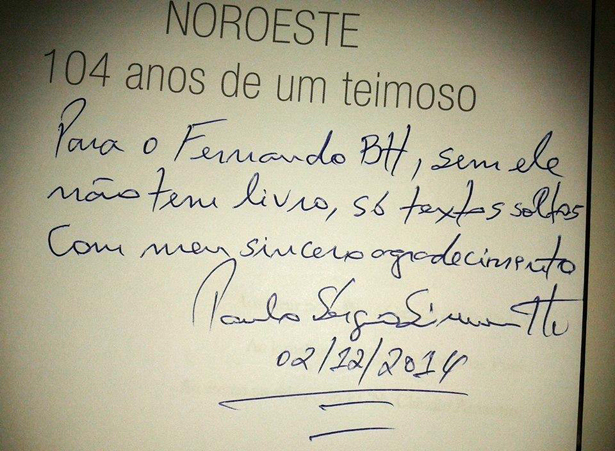 NOROESTE
104 anos de um teimoso
Para o Fernando BH, sem ele
não tem livro, só textos soltos
Com meu sincero agradecimento
Paulo Sérgio Simonetti
02/12/2014